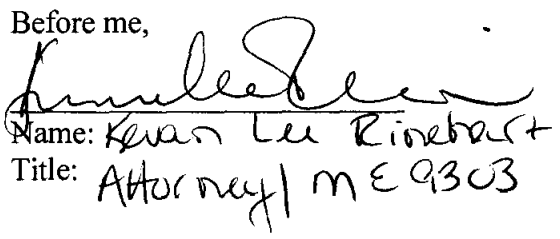 Before me,
Name: Kevan Lee Rinehart
Title: Attorney / ME 9303